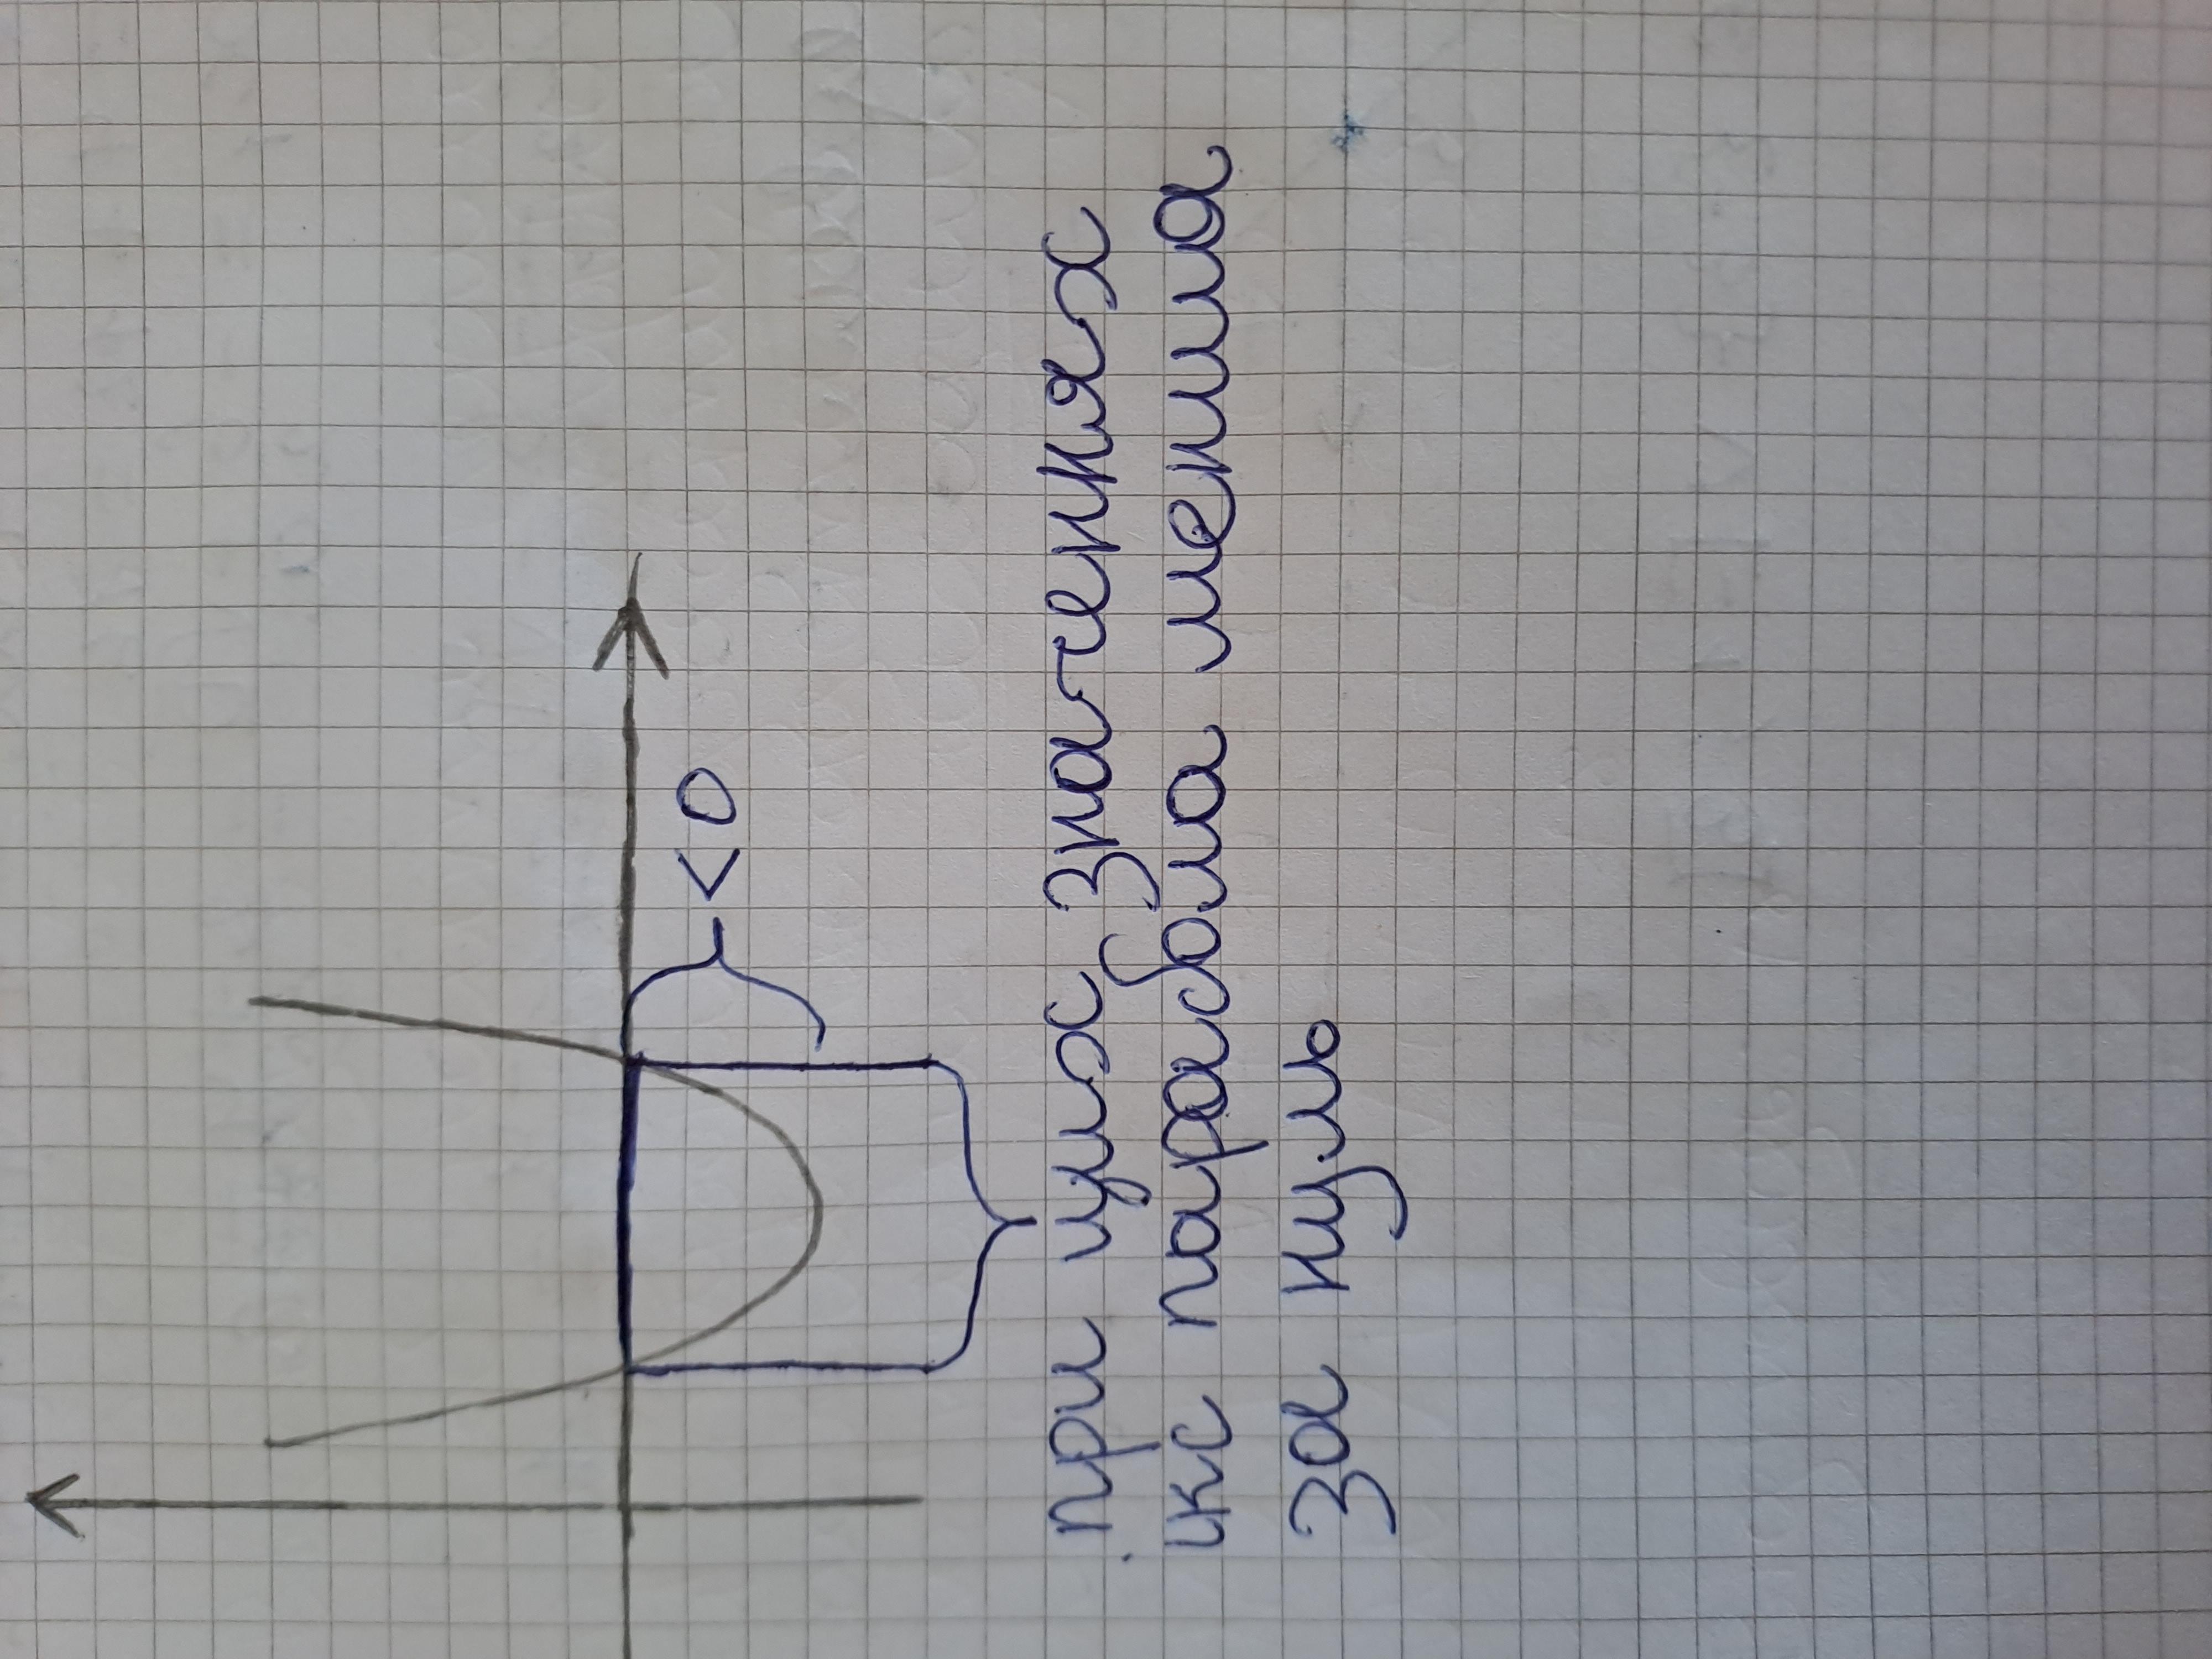 < 0
при цих значеннях
ікс парабола менша
за нуль